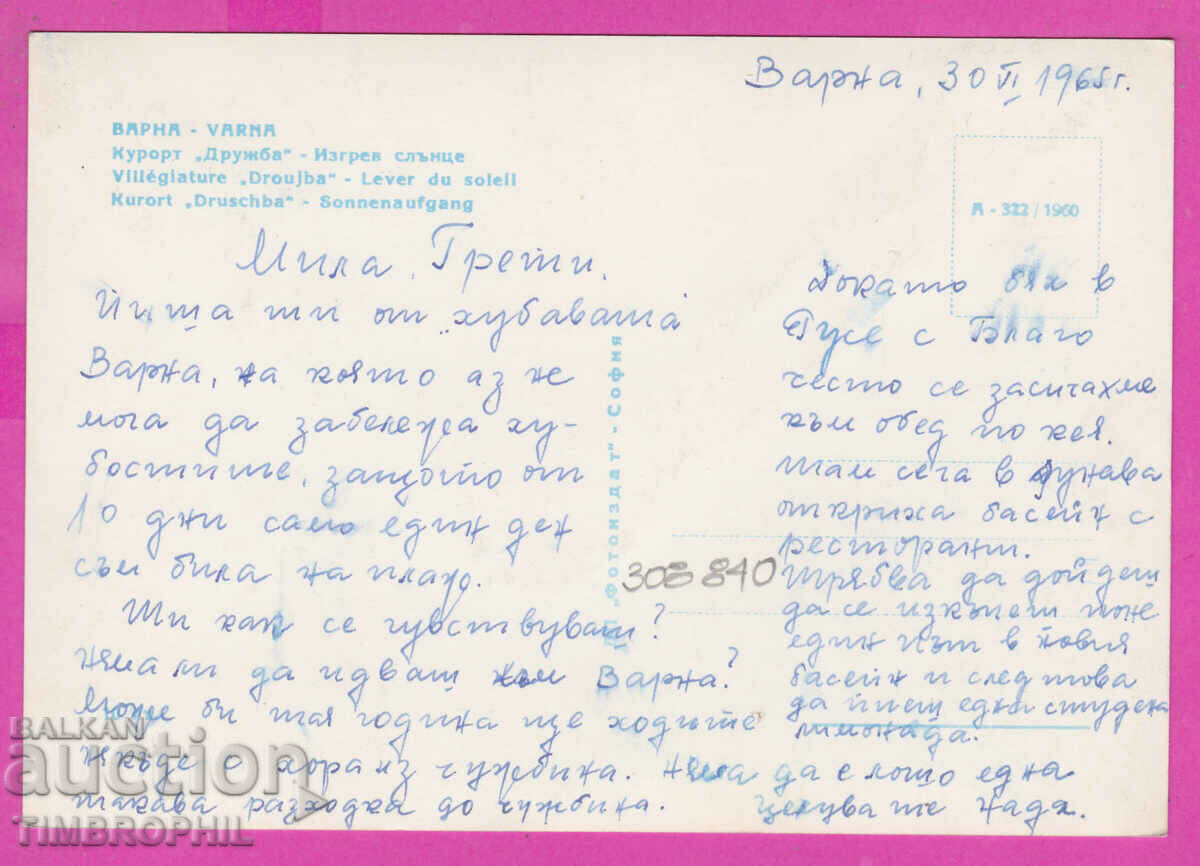 Варна, 30 VI 1965 г.
ВАРНА - VARNA
Курорт „Дружба" - Изгрев слънце
Villégiature „Droujba" - Lever du soleil
Kurort „Druschba" - Sonnenaufgang
А - 322 / 1960
Мила Грети,
Пиша ти от „хубавата
Варна, на която аз не
мога да забележа ху-
бостите, защото от
10 дни само един ден
съм била на плаж.
Ти как се чувствуваш?
няма ли да идваш към Варна?
Може би тая година ще ходите
нкъде с хора из чужбина. Няма да е лошо една
такава разходка до чужбина.
„Фотоиздат" - София
308840
Докато бях в
Русе с Благо
често се засичахме
към обед по кея.
Там сега в Дунава
откриха басейн с
ресторант.
Трябва да дойдеш
да се изкъпеш поне
един път в новия
басейн и след това
да пиеш една студена
лимонада.
Целува те Надя.
BALKAN
auction
TIMBROPHIL